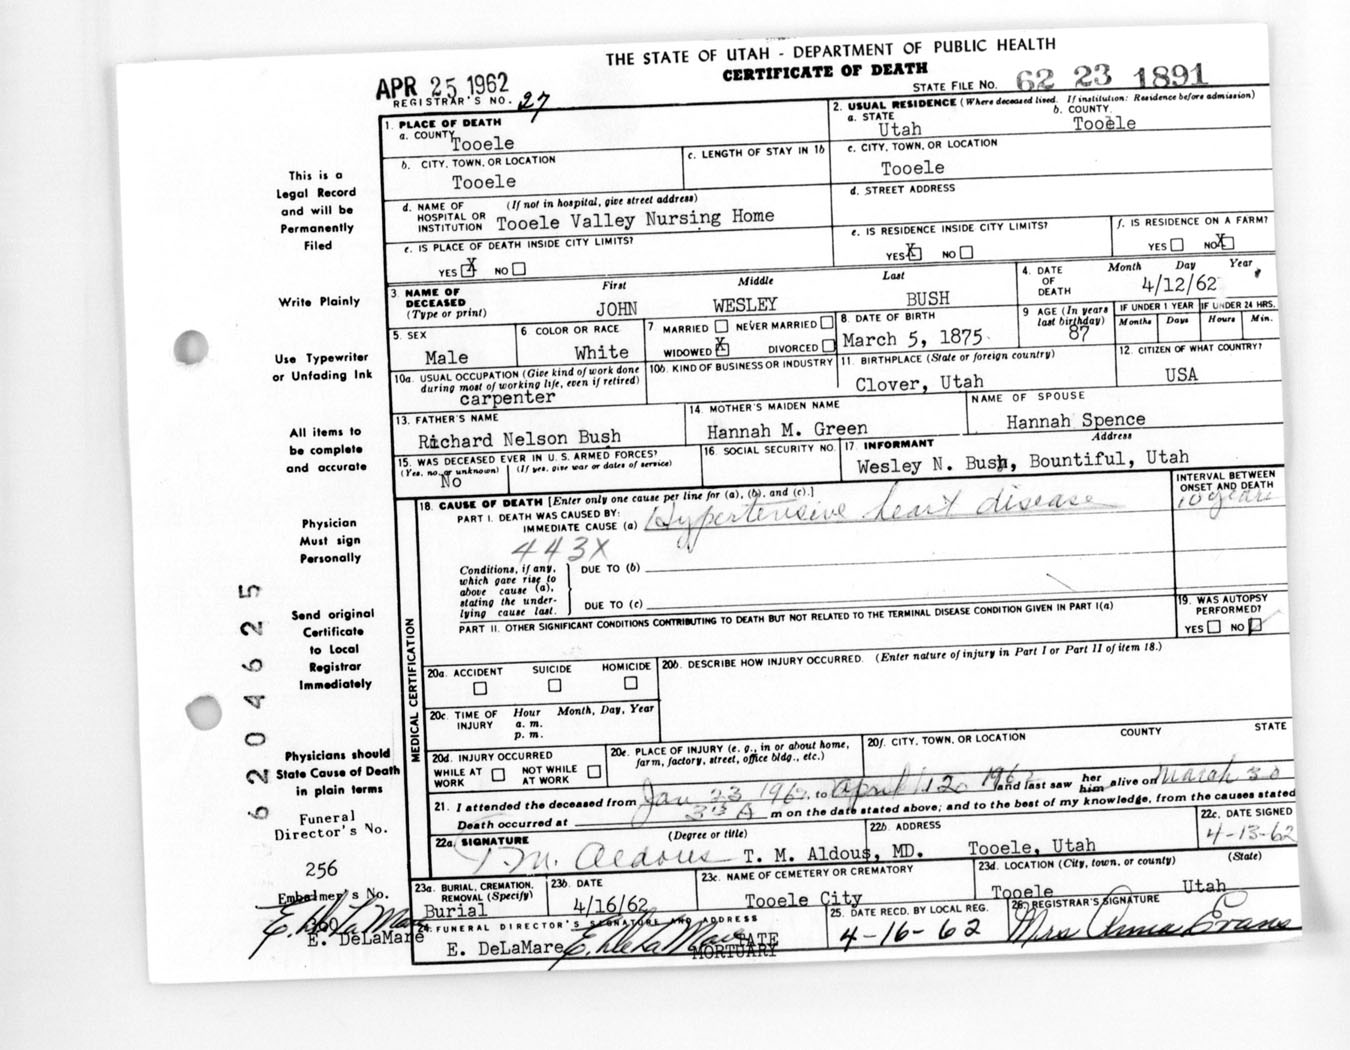 THE STATE OF UTAH - DEPARTMENT OF PUBLIC HEALTH
CERTIFICATE OF DEATH
APR 25 1962
REGISTRAR'S NO. 27
STATE FILE NO. 62 23 1891
1. PLACE OF DEATH
a. COUNTY Tooele
2. USUAL RESIDENCE (Where deceased lived. If institution: Residence before admission)
a. STATE Utah b. COUNTY Tooele
b. CITY, TOWN, OR LOCATION Tooele
c. LENGTH OF STAY IN 1b
c. CITY, TOWN, OR LOCATION Tooele
d. NAME OF HOSPITAL OR INSTITUTION (If not in hospital, give street address) Tooele Valley Nursing Home
d. STREET ADDRESS
e. IS PLACE OF DEATH INSIDE CITY LIMITS?
YES X NO
e. IS RESIDENCE INSIDE CITY LIMITS?
YES X NO
f. IS RESIDENCE ON A FARM?
YES NO X
3. NAME OF DECEASED (Type or print)
First Middle Last
JOHN WESLEY BUSH
4. DATE OF DEATH Month Day Year
4/12/62
5. SEX Male
6. COLOR OR RACE White
7 MARRIED NEVER MARRIED
WIDOWED X DIVORCED
8. DATE OF BIRTH March 5, 1875
9 AGE (In years last birthday) 87
IF UNDER 1 YEAR Months Days
IF UNDER 24 HRS. Hours Min.
10a. USUAL OCCUPATION (Give kind of work done during most of working life, even if retired)
carpenter
10b. KIND OF BUSINESS OR INDUSTRY
11. BIRTHPLACE (State or foreign country)
Clover, Utah
12. CITIZEN OF WHAT COUNTRY?
USA
13. FATHER'S NAME
Richard Nelson Bush
14. MOTHER'S MAIDEN NAME
Hannah M. Green
NAME OF SPOUSE
Hannah Spence
15. WAS DECEASED EVER IN U. S. ARMED FORCES?
(Yes, no, or unknown) (If yes, give war or dates of service)
No
16. SOCIAL SECURITY NO.
17. INFORMANT Address
Wesley N. Bush, Bountiful, Utah
18. CAUSE OF DEATH [Enter only one cause per line for (a), (b), and (c).]
PART I. DEATH WAS CAUSED BY:
IMMEDIATE CAUSE (a) Hypertensive heart disease
INTERVAL BETWEEN ONSET AND DEATH
10 years
443X
Conditions, if any, which gave rise to above cause (a), stating the underlying cause last.
DUE TO (b)
DUE TO (c)
PART II. OTHER SIGNIFICANT CONDITIONS CONTRIBUTING TO DEATH BUT NOT RELATED TO THE TERMINAL DISEASE CONDITION GIVEN IN PART I(a)
19. WAS AUTOPSY PERFORMED?
YES NO
MEDICAL CERTIFICATION
20a. ACCIDENT SUICIDE HOMICIDE
20b. DESCRIBE HOW INJURY OCCURRED. (Enter nature of injury in Part I or Part II of item 18.)
20c. TIME OF INJURY Hour a. m. p. m. Month, Day, Year
20d. INJURY OCCURRED
WHILE AT WORK NOT WHILE AT WORK
20e. PLACE OF INJURY (e. g., in or about home, farm, factory, street, office bldg., etc.)
20f. CITY, TOWN, OR LOCATION COUNTY STATE
21. I attended the deceased from Jan 23 1962, to April 12 1962 and last saw her him alive on March 30
Death occurred at A m on the date stated above; and to the best of my knowledge, from the causes stated
22a. SIGNATURE (Degree or title)
T. M. Aldous T. M. Aldous, MD.
22b. ADDRESS
Tooele, Utah
22c. DATE SIGNED
4-13-62
23a. BURIAL, CREMATION, REMOVAL (Specify)
Burial
23b. DATE
4/16/62
23c. NAME OF CEMETERY OR CREMATORY
Tooele City
23d. LOCATION (City, town, or county) (State)
Tooele Utah
24. FUNERAL DIRECTOR'S SIGNATURE AND ADDRESS
E. DeLaMare
MORTUARY
25. DATE RECD. BY LOCAL REG.
4-16-62
26. REGISTRAR'S SIGNATURE
Mrs Anna Evans
This is a
Legal Record
and will be
Permanently
Filed
Write Plainly
Use Typewriter
or Unfading Ink
All items to
be complete
and accurate
Physician
Must sign
Personally
Send original
Certificate
to Local
Registrar
Immediately
Physicians should
State Cause of Death
in plain terms
Funeral
Director's No.
256
Embalmer's No.
E. DeLaMare
6204625